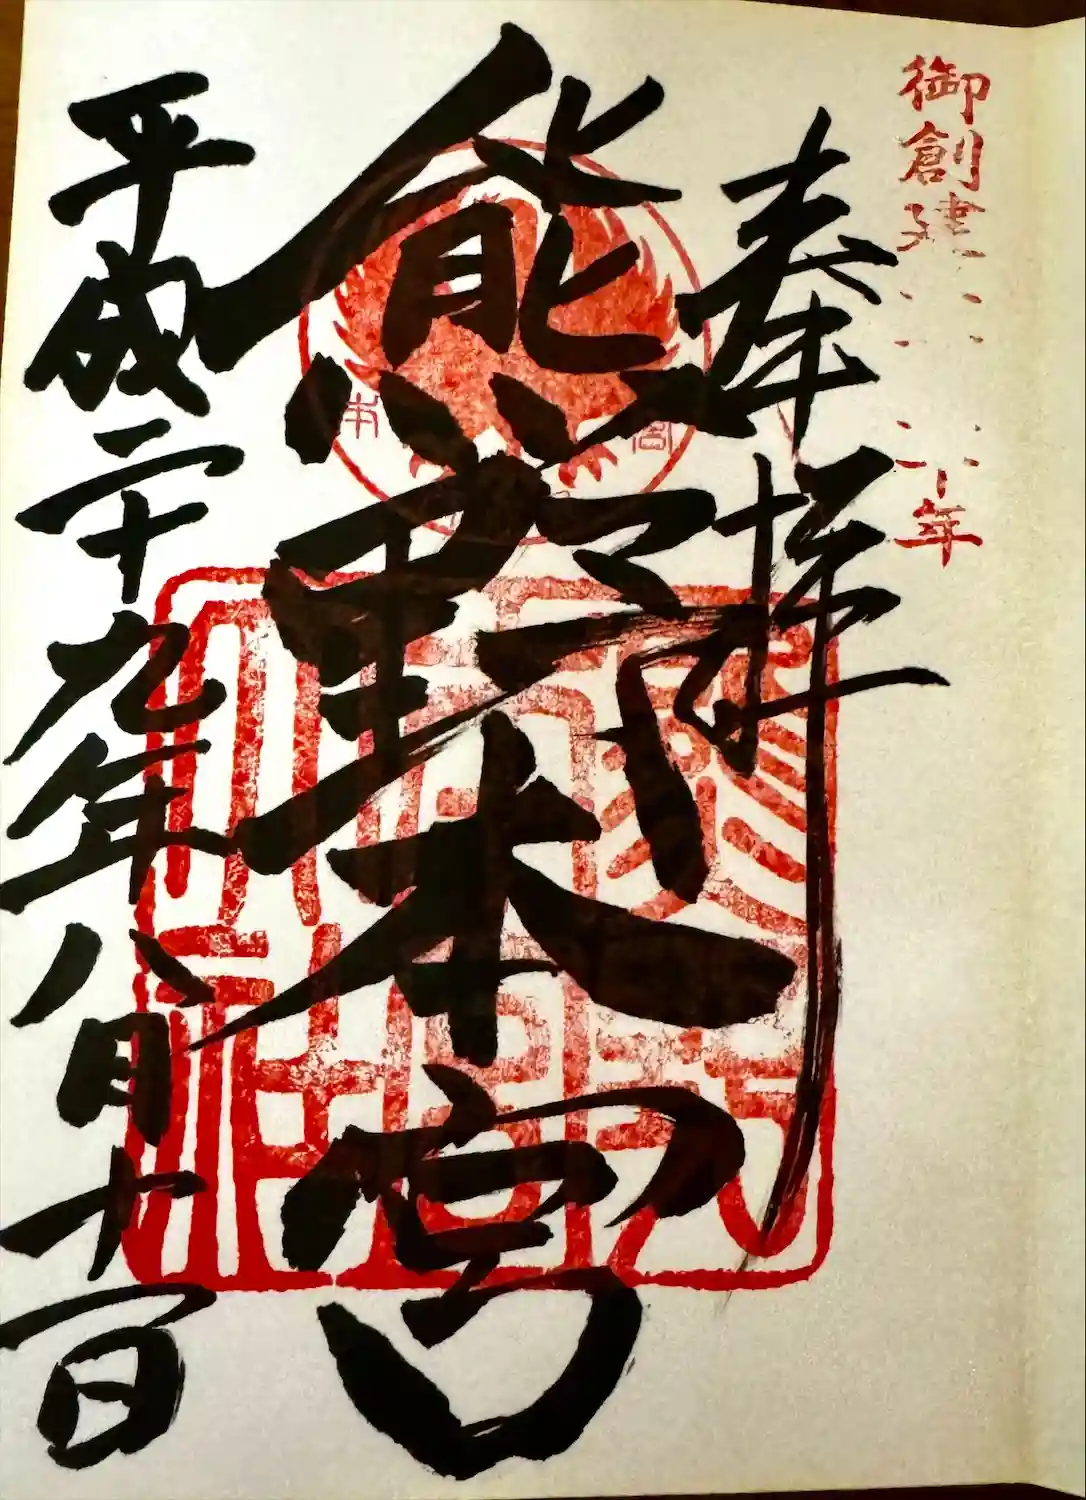 御創建
十年
奉拝
熊野本宮
平成二十九年八月十一日